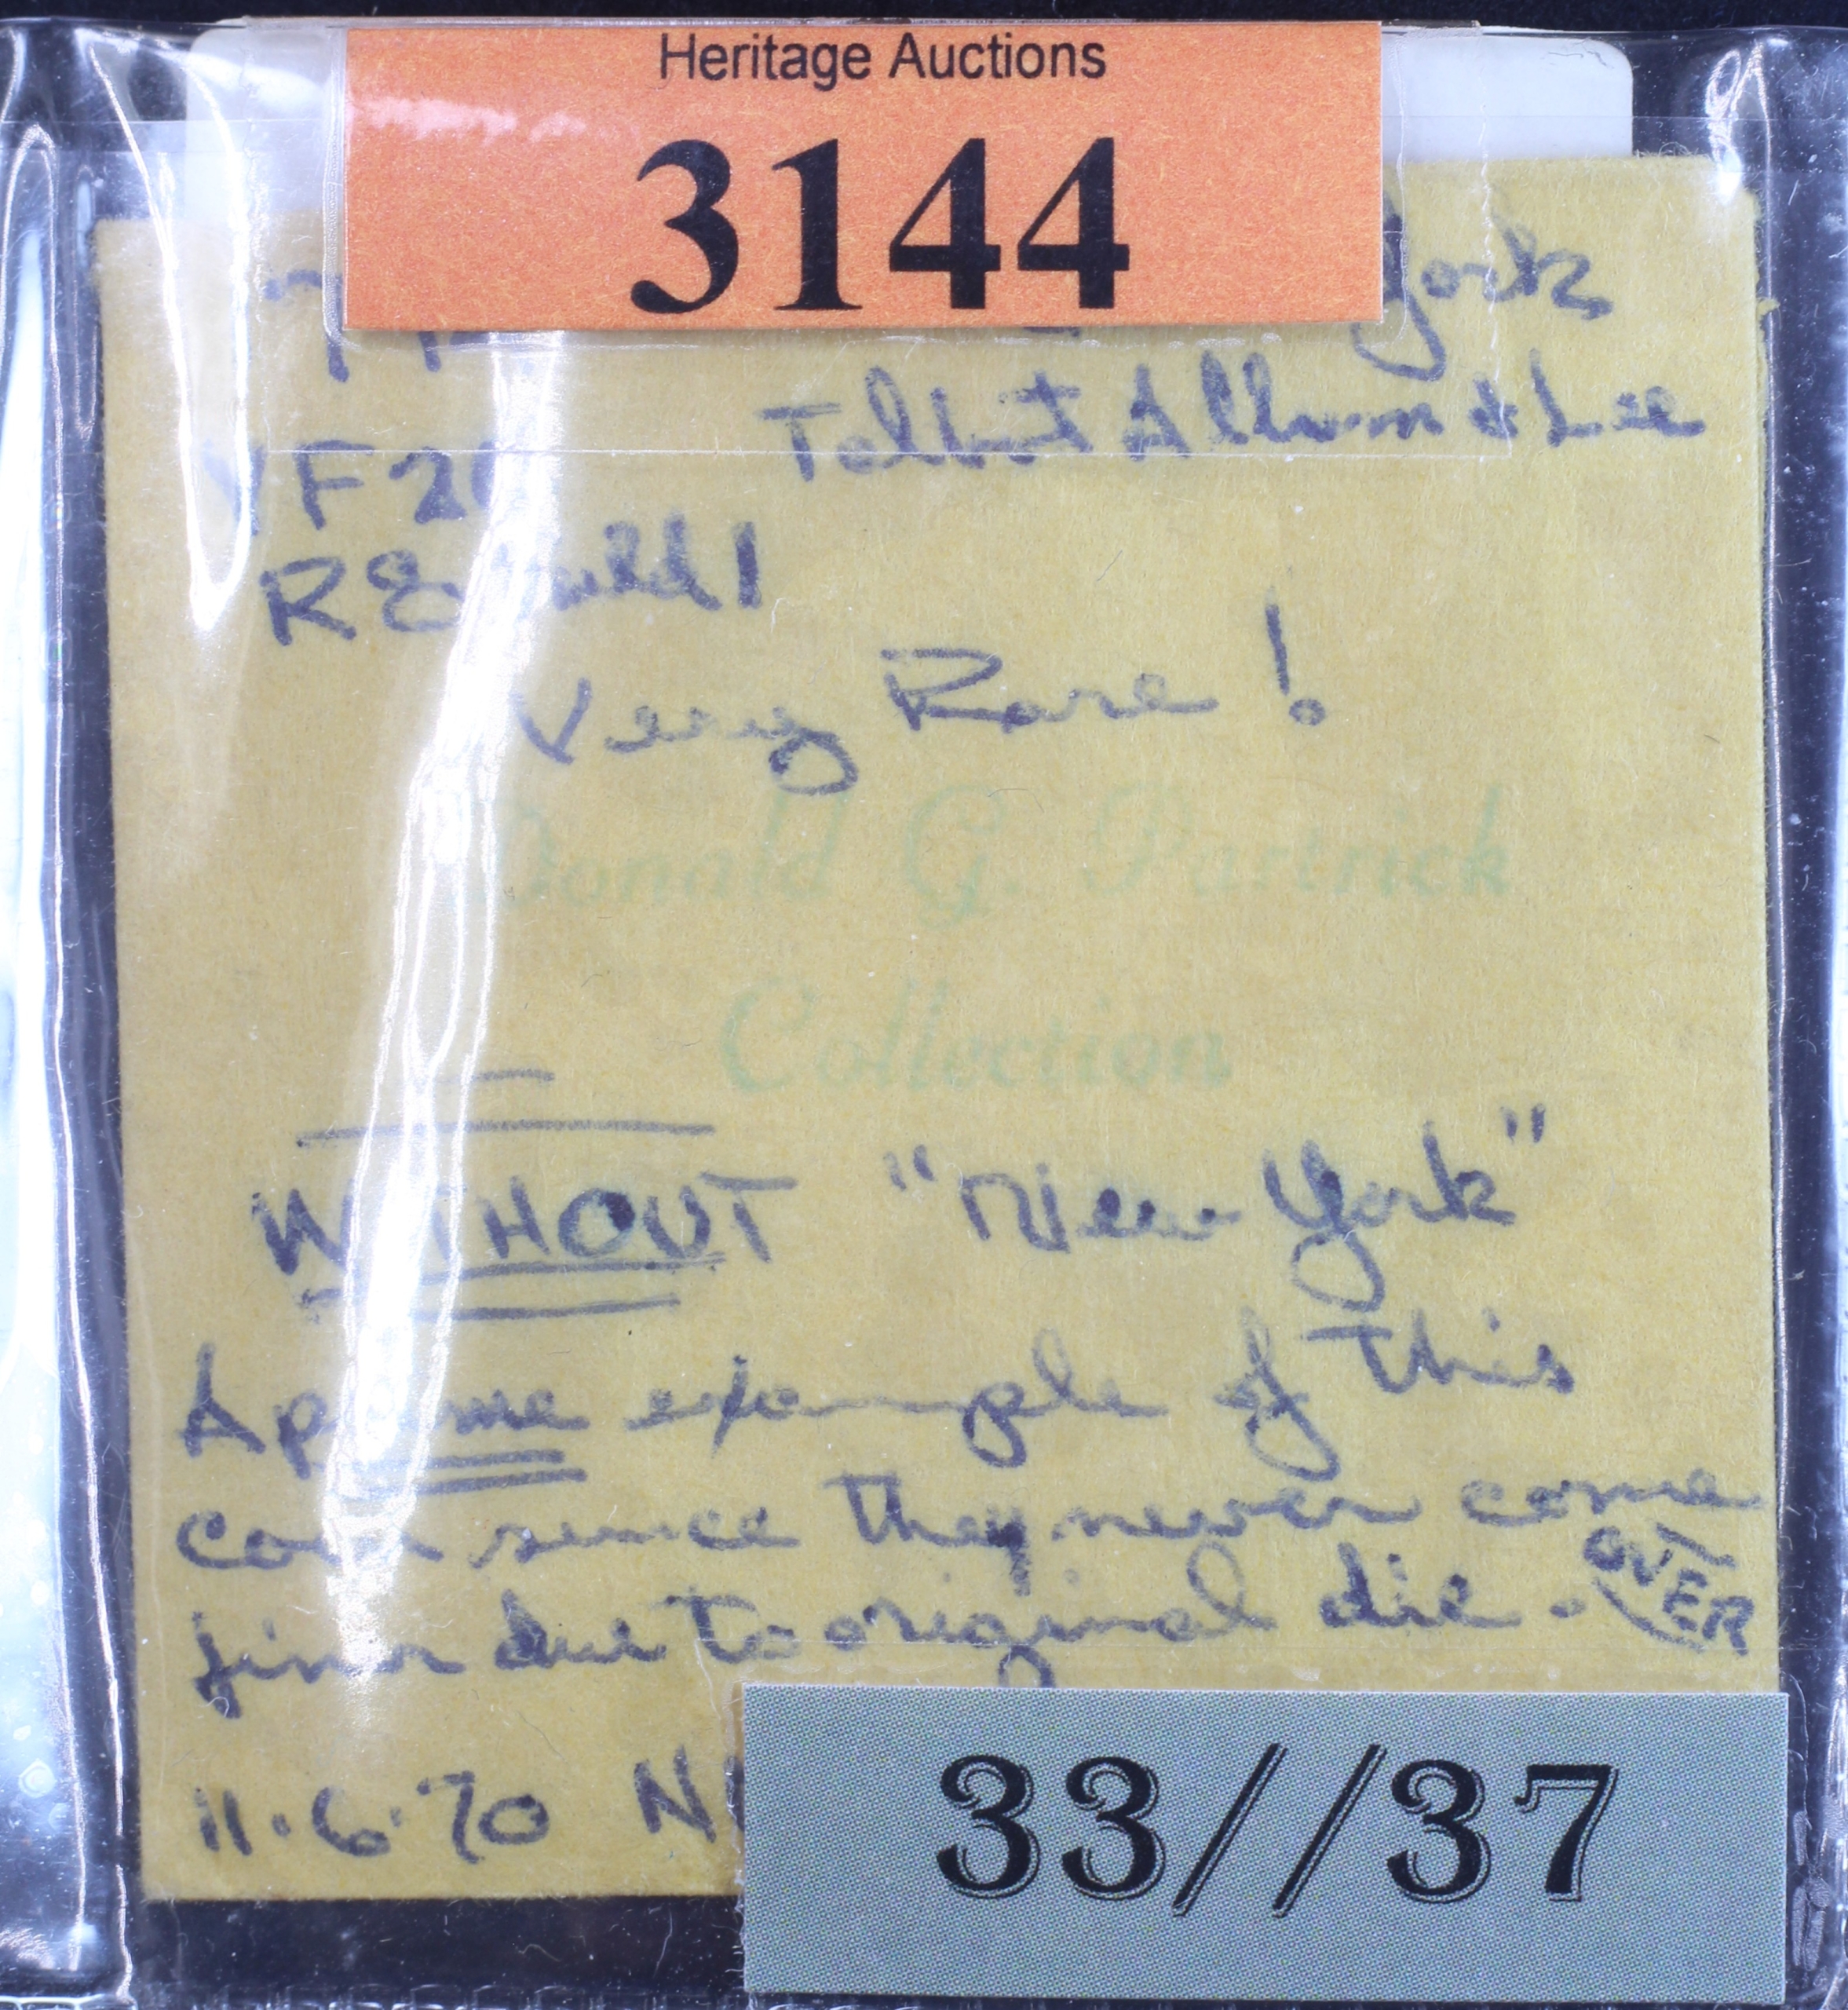 Heritage Auctions
3144
York
Talbot Allum & Lee
VF 20
R8
Very Rare!
Donald G. Partrick
Collection
WITHOUT "New York"
A prime example of this
coin since they never come
finer due to original die. OVER
11.6.70 N
33//37